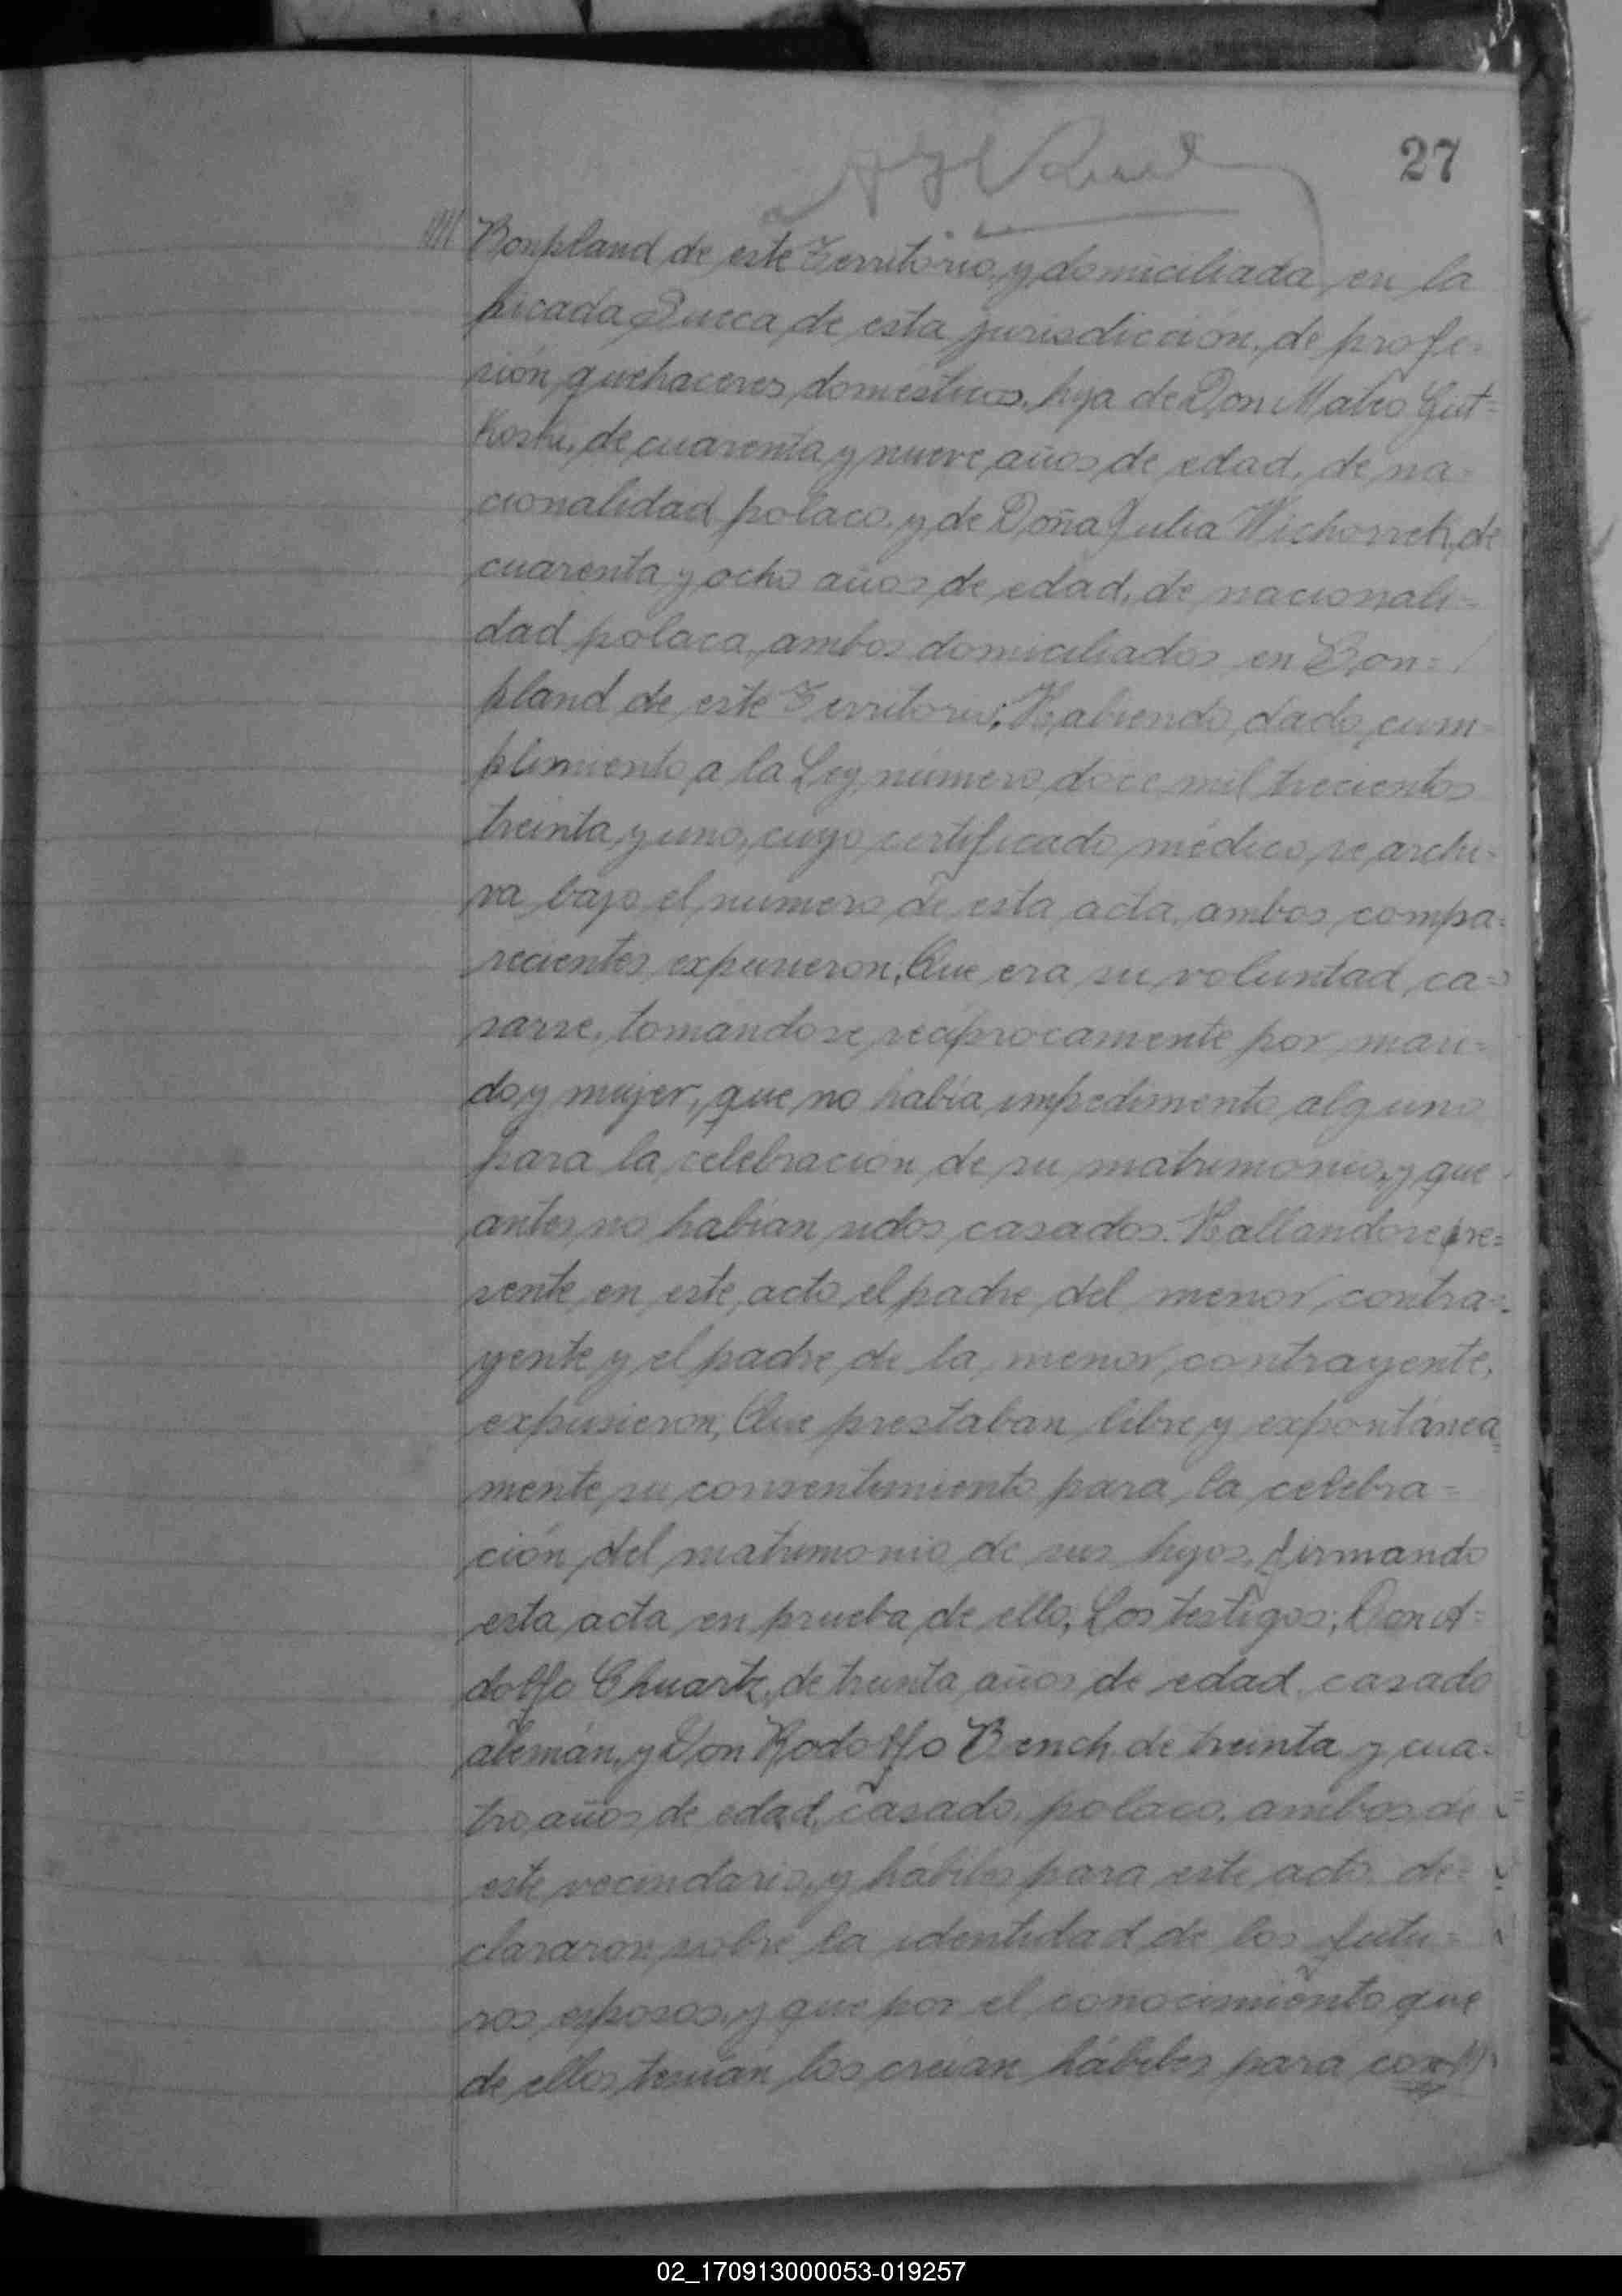 27
//// Bonpland de este Territorio, y domiciliada en la
picada Sueca, de esta jurisdicción, de profe=
sión quehaceres domésticos, hija de Don Mateo Gut=
Koski, de cuarenta y nueve años de edad, de na=
cionalidad polaco, y de Doña Julia Wichorrek, de
cuarenta y ocho años de edad, de nacionali=
dad polaca, ambos domiciliados en Bon=
pland de este Territorio; Habiendo dado cum=
plimiento a la Ley número doce mil trecientos
treinta y uno, cuyo certificado médico se archi=
va bajo el número de esta acta, ambos compa=
recientes expusieron; Que era su voluntad ca=
sarse, tomandose reciprocamente por mari=
do y mujer, que no había impedimento alguno
para la celebración de su matrimonio, y que
antes no habían sidos casados. Hallandose pre=
sente en este acto el padre del menor contra=
yente y el padre de la menor contrayente,
expusieron; Que prestaban libre y expontánea
mente su consentimiento para la celebra=
ción del matrimonio de sus hijos, firmando
esta acta en prueba de ello, Los testigos; Don A=
dolfo Chuartz, de treinta años de edad, casado
alemán, y Don Rodolfo Bench de treinta y cua=
tro años de edad, casado, polaco, ambos de
este vecindario, y hábiles para este acto, de=
clararon sobre la identidad de los futu=
ros esposos, y que por el conocimiento que
de ellos tenían los creían hábiles para con///
02_170913000053-019257